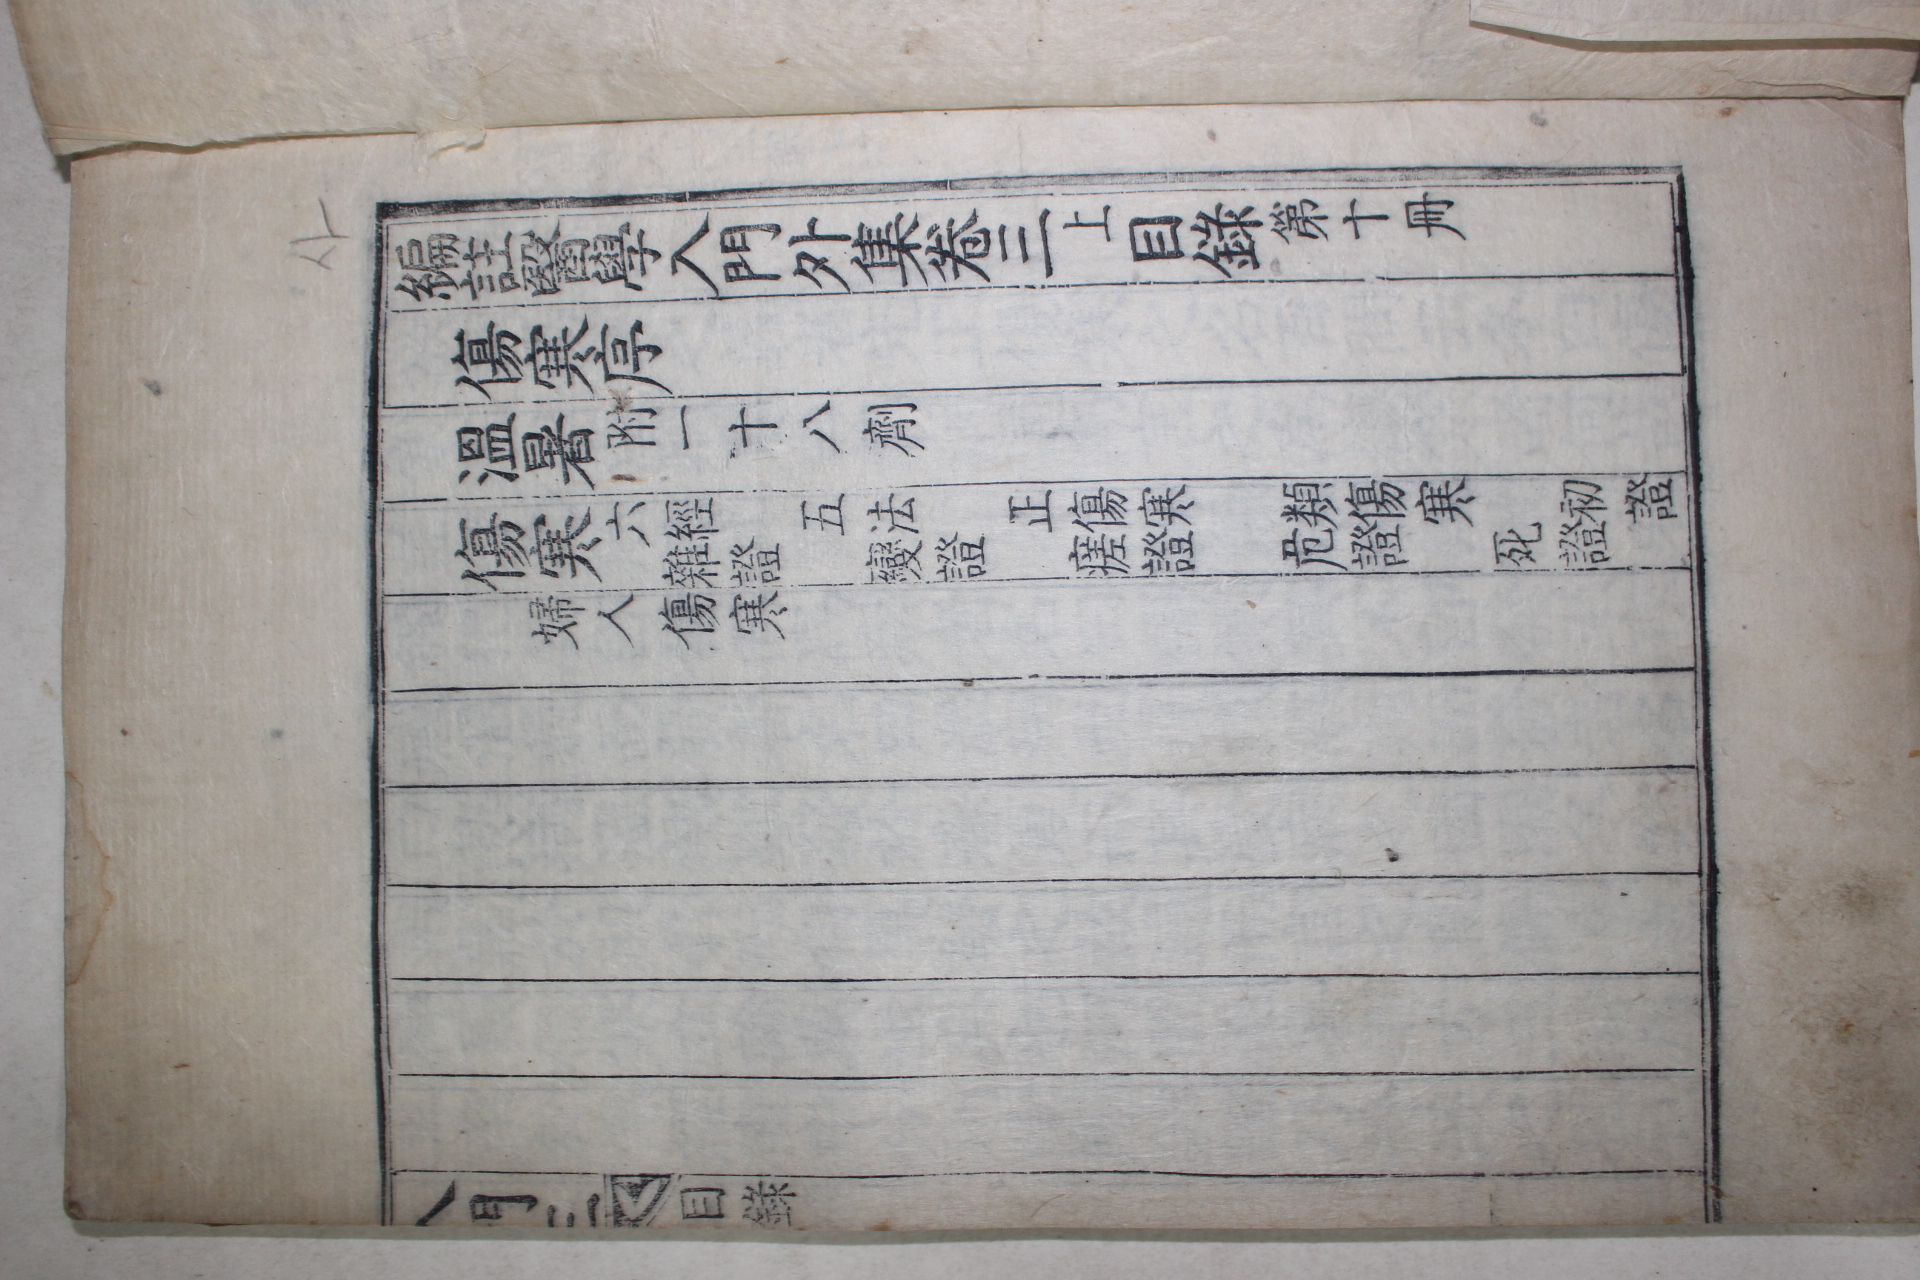 사
編註醫學入門外集卷三上目錄第十冊
傷寒序
溫暑附一十八劑
傷寒六經 五法 正傷寒 類傷寒 初證
雜證 變證 瘥證 危證 死證
婦人傷寒
入門 三 目錄